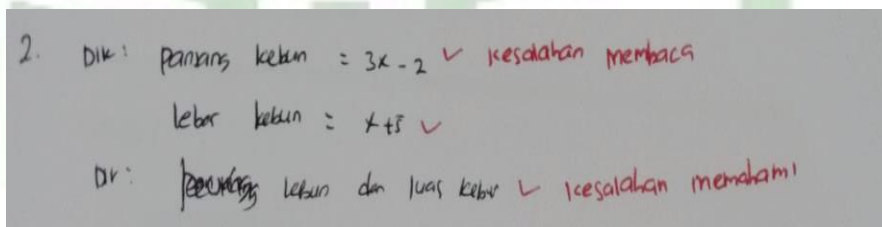 2. Dik: Panjang kebun = 3x - 2 ✓ Kesalahan membaca
lebar kebun = x+5 ✓
Dit: kebun dan luas kebun ✓ Kesalahan memahami